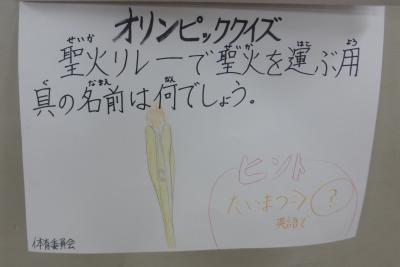 オリンピッククイズ
聖火リレーで聖火を運ぶ用
具の名前は何でしょう。
ヒント
たいまつ⇒?
英語で
体育委員会